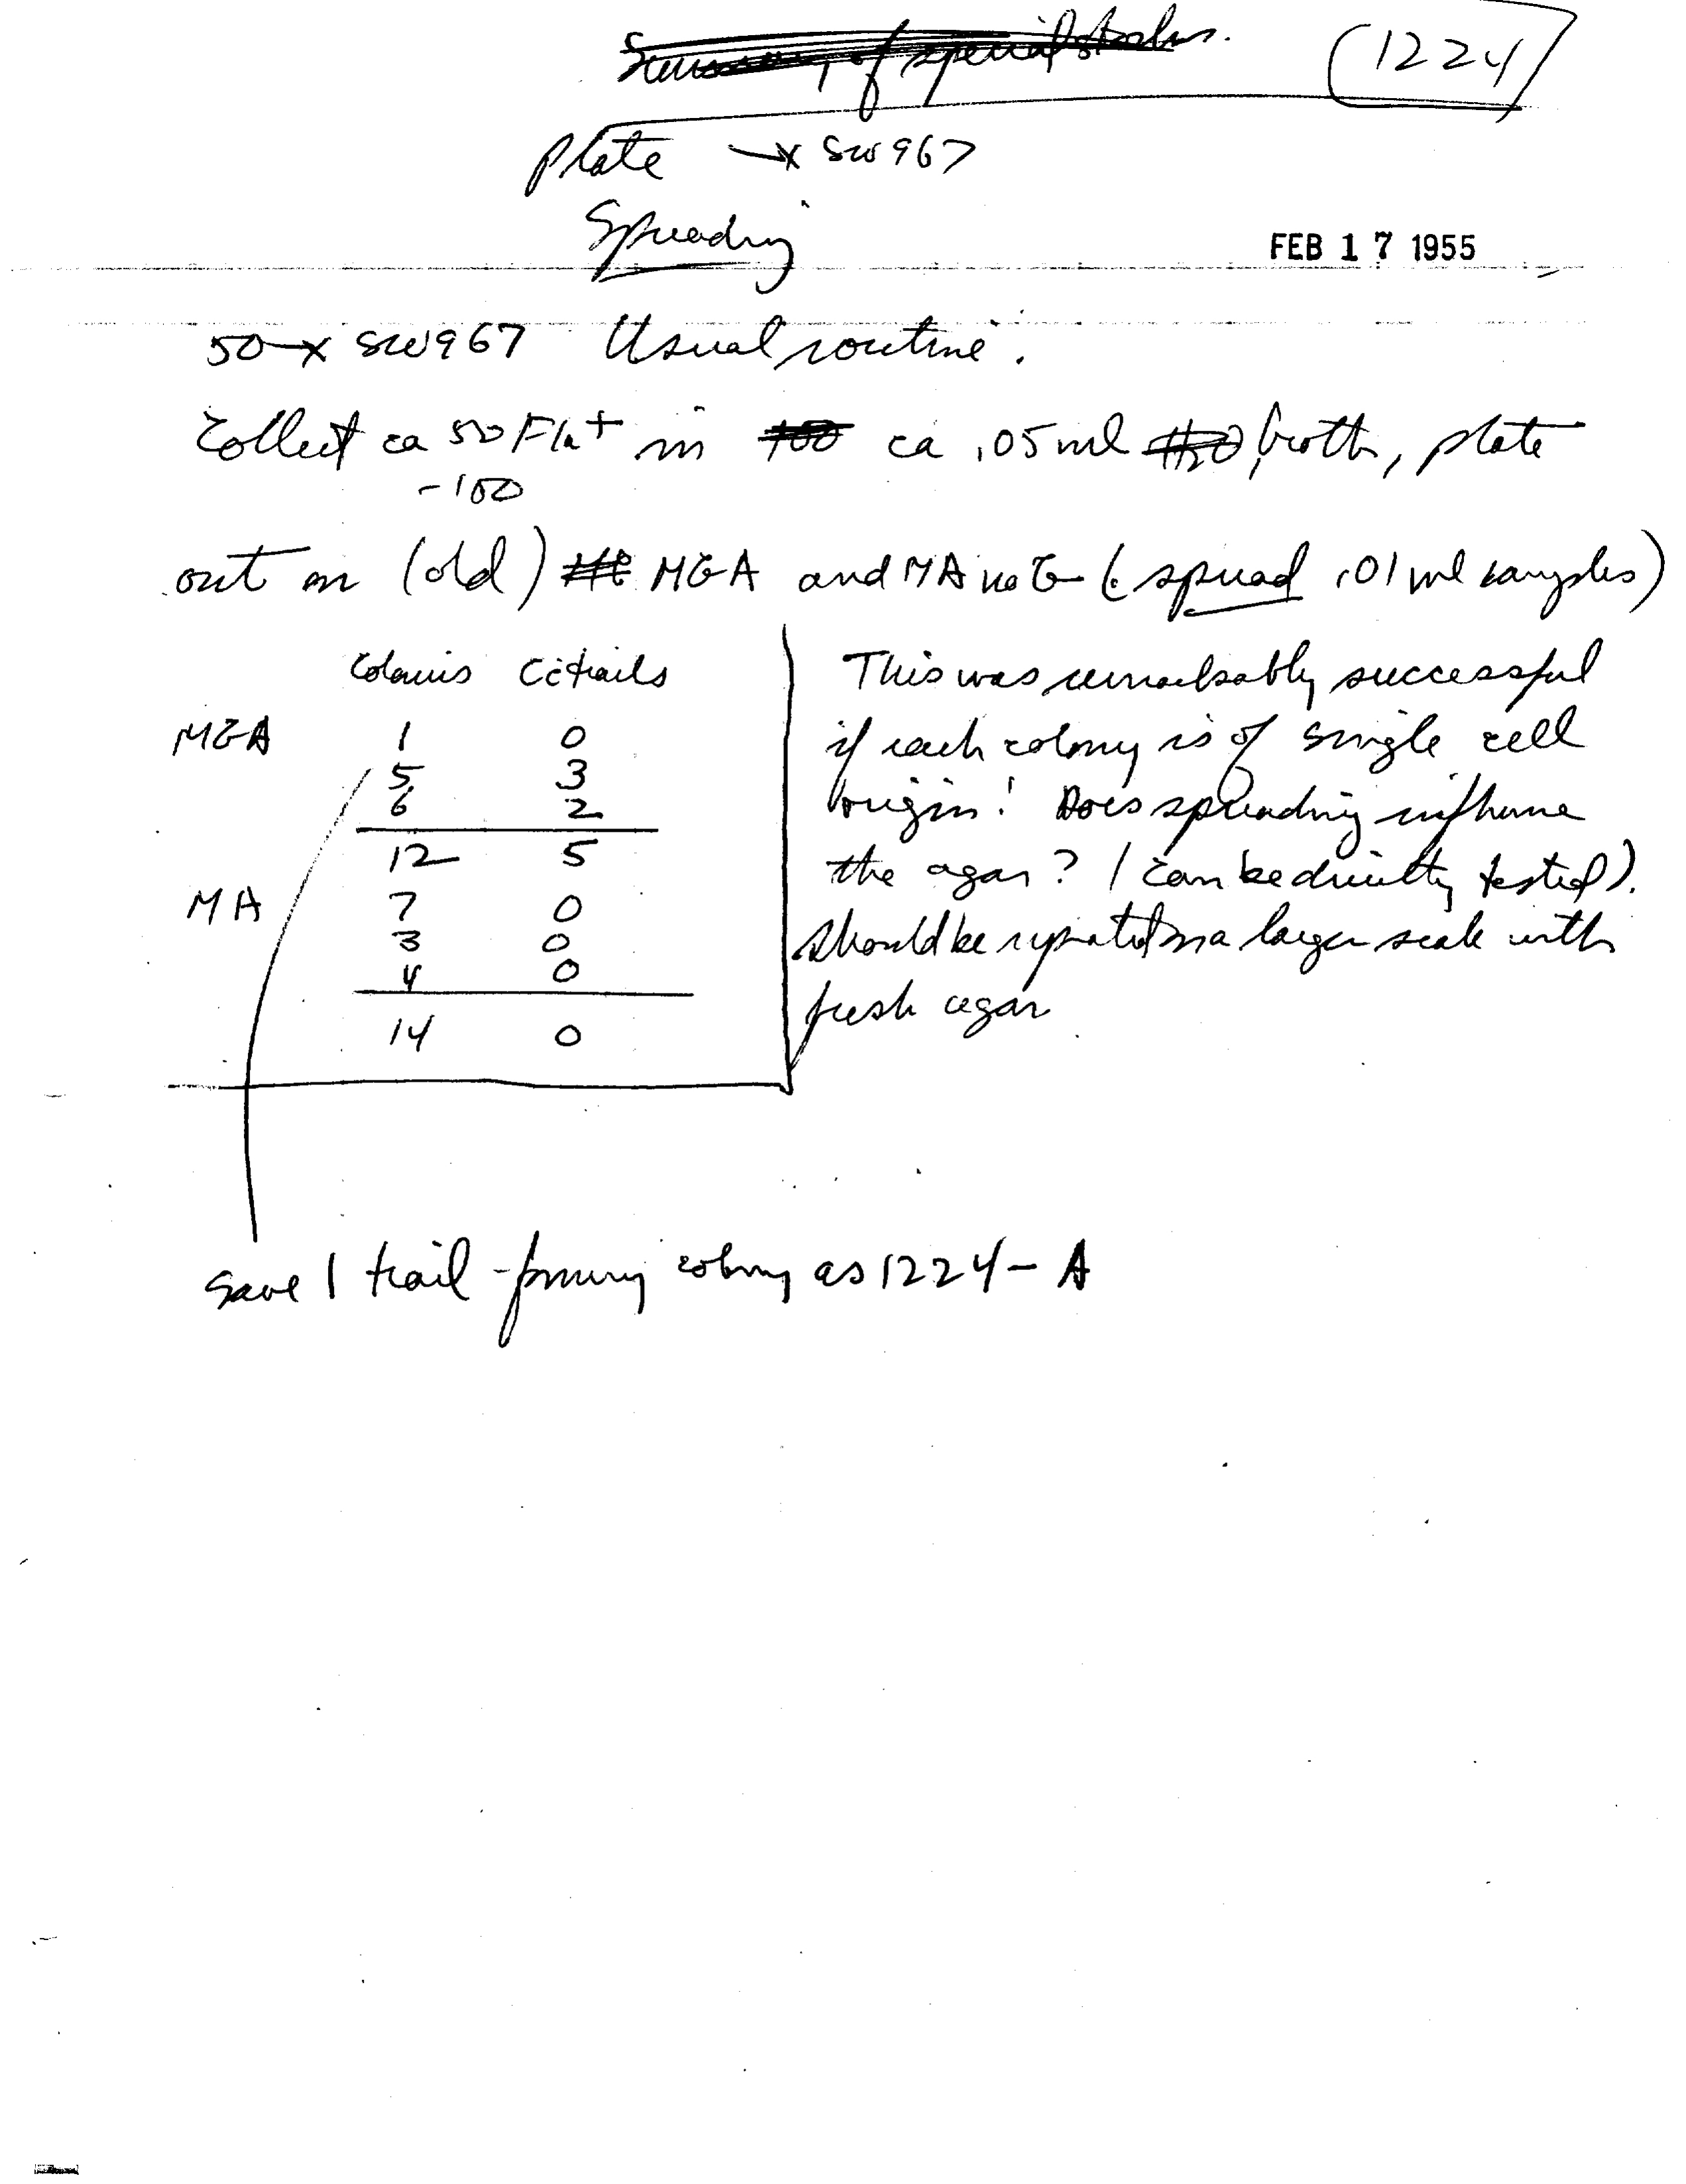 Summary of special stocks.
1224
Plate —x SW967
Spreading
FEB 17 1955
50—x SW967 Usual routine.
Collect ca 50 Fla+ in 100 ca .05ml H2O broth, plate
-100
out on (old) MGA and MA no G (spread .01 ml samples)
Colonies C̄ trails
MGA 1 0
5 3
6 2
12 5
MA 7 0
3 0
4 0
14 0
This was remarkably successful
if each colony is of single cell
origin! Does spreading influence
the agar? (can be directly tested).
Should be repeated on a larger scale with
fresh agar
Save 1 trail-forming colony as 1224-A